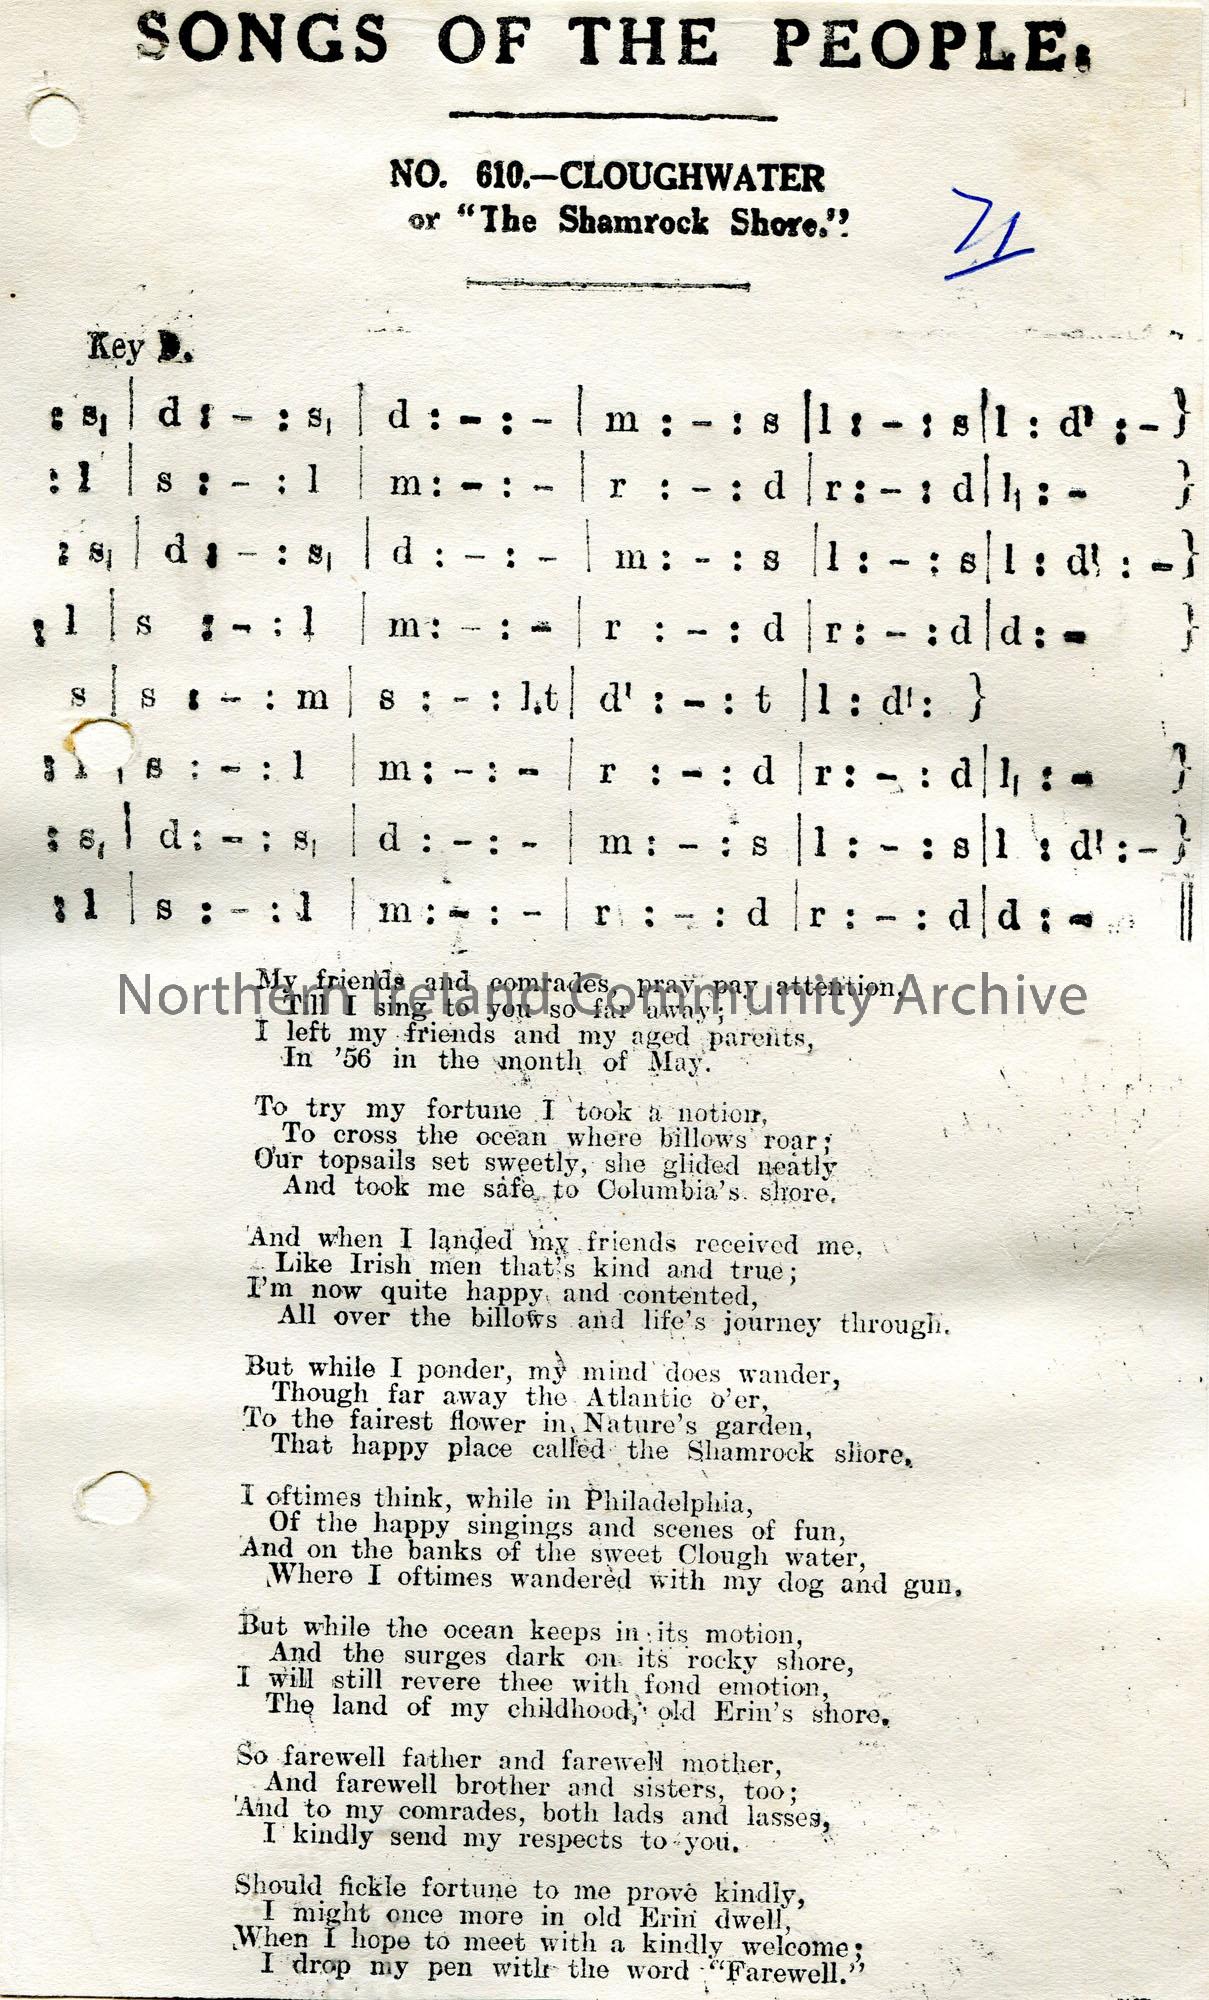 SONGS OF THE PEOPLE.
NO. 610.—CLOUGHWATER
or "The Shamrock Shore."
71
Key D.
: s, | d : - : s, | d : - : - | m : - : s | l : - : s | l : d' : - }
: l | s : - : l | m : - : - | r : - : d | r : - : d | l, : - }
: s, | d : - : s, | d : - : - | m : - : s | l : - : s | l : d' : - }
: l | s : - : l | m : - : - | r : - : d | r : - : d | d : - }
s | s : - : m | s : - : l.t | d' : - : t | l : d' : }
: l | s : - : l | m : - : - | r : - : d | r : - : d | l, : - }
: s, | d : - : s, | d : - : - | m : - : s | l : - : s | l : d' : - }
: l | s : - : l | m : - : - | r : - : d | r : - : d | d : - ||
My friends and comrades, pray pay attention,
Northern Ireland Community Archive
Till I sing to you so far away;
I left my friends and my aged parents,
In '56 in the month of May.
To try my fortune I took a notion,
To cross the ocean where billows roar;
Our topsails set sweetly, she glided neatly
And took me safe to Columbia's shore.
And when I landed my friends received me,
Like Irish men that's kind and true;
I'm now quite happy and contented,
All over the billows and life's journey through.
But while I ponder, my mind does wander,
Though far away the Atlantic o'er,
To the fairest flower in Nature's garden,
That happy place called the Shamrock shore.
I oftimes think, while in Philadelphia,
Of the happy singings and scenes of fun,
And on the banks of the sweet Clough water,
Where I oftimes wandered with my dog and gun.
But while the ocean keeps in its motion,
And the surges dark on its rocky shore,
I will still revere thee with fond emotion,
The land of my childhood, old Erin's shore.
So farewell father and farewell mother,
And farewell brother and sisters, too;
And to my comrades, both lads and lasses,
I kindly send my respects to you.
Should fickle fortune to me prove kindly,
I might once more in old Erin dwell,
When I hope to meet with a kindly welcome;
I drop my pen with the word "Farewell."